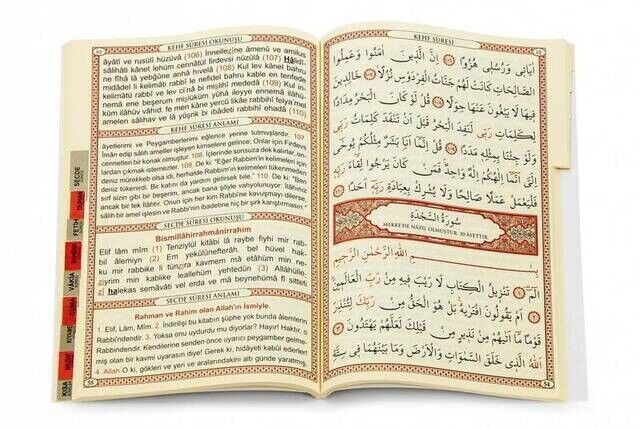 KEHF SÛRESİ OKUNUŞU
âyâtî ve rusulî hüzüvâ (106) İnnellezîne âmenû ve amilus
sâlihâti kânet lehüm cennâtül firdevsi nüzülâ (107) Hâlidî-
ne fîhâ lâ yebğûne anhâ hıvelâ (108) Kul lev kânel bahru
midâdel li kelimâti rabbî le nefidel bahru kable en tenfede
kelimâtü rabbî ve lev ci'nâ bi mislihî mededâ (109) Kul in-
nemâ ene beşerum mislüküm yûhâ ileyye ennemâ ilâhü-
küm ilâhuv vâhid, fe men kâne yercû likâe rabbihî felya'mel
amelen sâlihav ve lâ yüşrik bi ıbâdeti rabbihî ehadâ (110)
KEHF SÛRESİ ANLAMI
âyetlerimi ve Peygamberlerimi eğlence yerine tutmuşlardır. 107.
İman edip sâlih ameller işleyen kimselere gelince; Onlar için Firdevs
cennetleri bir konak olmuştur. 108. İçlerinde sonsuza dek kalırlar, on-
lardan çıkmak istemezler. 109. De ki: "Eğer Rabbim'in kelimeleri için
deniz mürekkeb olsa idi, herhalde Rabbimin kelimeleri tükenmeden
deniz tükenirdi. Bir katını da yardım getirsek bile." 110. De ki: "Ben
sırf sizin gibi bir beşerim, ancak bana şöyle vahyolunuyor: İlâhınız
ancak bir tek İlâhtır. Onun için her kim Rabbi'ne kavuşmayı dilerse,
sâlih bir amel işlesin ve Rabbi'nin ibadetine hiç bir şirk karıştırmasın."
SECDE SÛRESİ OKUNUŞU
Bismillâhirrahmânirrahîm
Elif lâm mîm (1) Tenzîylül kitâbi lâ raybe fîyhi mir rab-
bil âlemiyn (2) Em yekûlûnefterâh, bel hüvel hak-
ku mir rabbike li tünzira kavmem mâ etâhüm min ne-
ziyrim min kablike leallehüm yehtedûn (3) Allâhülle-
zî halekas semâvâti vel erda ve mâ beynehümâ fî sitteti
SECDE SÛRESİ ANLAMI
Rahman ve Rahim olan Allah'ın İsmiyle.
1. Elif, Lâm, Mîm. 2. İndirilişi bu kitabın şüphe yok bunda âlemlerin
Rabbi'ndendir. 3. Yoksa onu uydurdu mu diyorlar? Hayır! Haktır, o
Rabbindendir. Kendilerine senden önce uyarıcı peygamber gelme-
miş olan bir kavmi uyarasın diye! Gerek ki, hidâyeti kabûl ederler!
4. Allah O ki, gökleri ve yeri ve aralarındakini altı günde yaratmış,
SECDE
DUHAN
FETH
VÂKIA
KIYAMET
KISA
KEHF SÛRESİ
اٰيَاتٖي وَرُسُلٖي هُزُوًا ﴿١٠٦﴾ اِنَّ الَّذٖينَ اٰمَنُوا وَعَمِلُوا
الصَّالِحَاتِ كَانَتْ لَهُمْ جَنَّاتُ الْفِرْدَوْسِ نُزُلًا ﴿١٠٧﴾ خَالِدٖينَ
فٖيهَا لَا يَبْغُونَ عَنْهَا حِوَلًا ﴿١٠٨﴾ قُلْ لَوْ كَانَ الْبَحْرُ مِدَادًا
لِكَلِمَاتِ رَبّٖي لَنَفِدَ الْبَحْرُ قَبْلَ اَنْ تَنْفَدَ كَلِمَاتُ رَبّٖي
وَلَوْ جِئْنَا بِمِثْلِهٖ مَدَدًا ﴿١٠٩﴾ قُلْ اِنَّمَا اَنَا بَشَرٌ مِثْلُكُمْ يُوحٰٓى
اِلَيَّ اَنَّمَا اِلٰهُكُمْ اِلٰهٌ وَاحِدٌ فَمَنْ كَانَ يَرْجُوا لِقَٓاءَ رَبِّهٖ
فَلْيَعْمَلْ عَمَلًا صَالِحًا وَلَا يُشْرِكْ بِعِبَادَةِ رَبِّهٖٓ اَحَدًا ﴿١١٠﴾
سُورَةُ السَّجْدَةِ
MEKKE'DE NÂZİL OLMUŞTUR. 30 ÂYETTİR.
بِسْمِ اللّٰهِ الرَّحْمٰنِ الرَّحٖيمِ
الٓمٓ ﴿١﴾ تَنْزٖيلُ الْكِتَابِ لَا رَيْبَ فٖيهِ مِنْ رَبِّ الْعَالَمٖينَ
﴿٢﴾ اَمْ يَقُولُونَ افْتَرٰيهُ بَلْ هُوَ الْحَقُّ مِنْ رَبِّكَ لِتُنْذِرَ
قَوْمًا مَٓا اَتٰيهُمْ مِنْ نَذٖيرٍ مِنْ قَبْلِكَ لَعَلَّهُمْ يَهْتَدُونَ ﴿٣﴾
اَللّٰهُ الَّذٖي خَلَقَ السَّمٰوَاتِ وَالْاَرْضَ وَمَا بَيْنَهُمَا فٖي سِتَّةِ
55
54